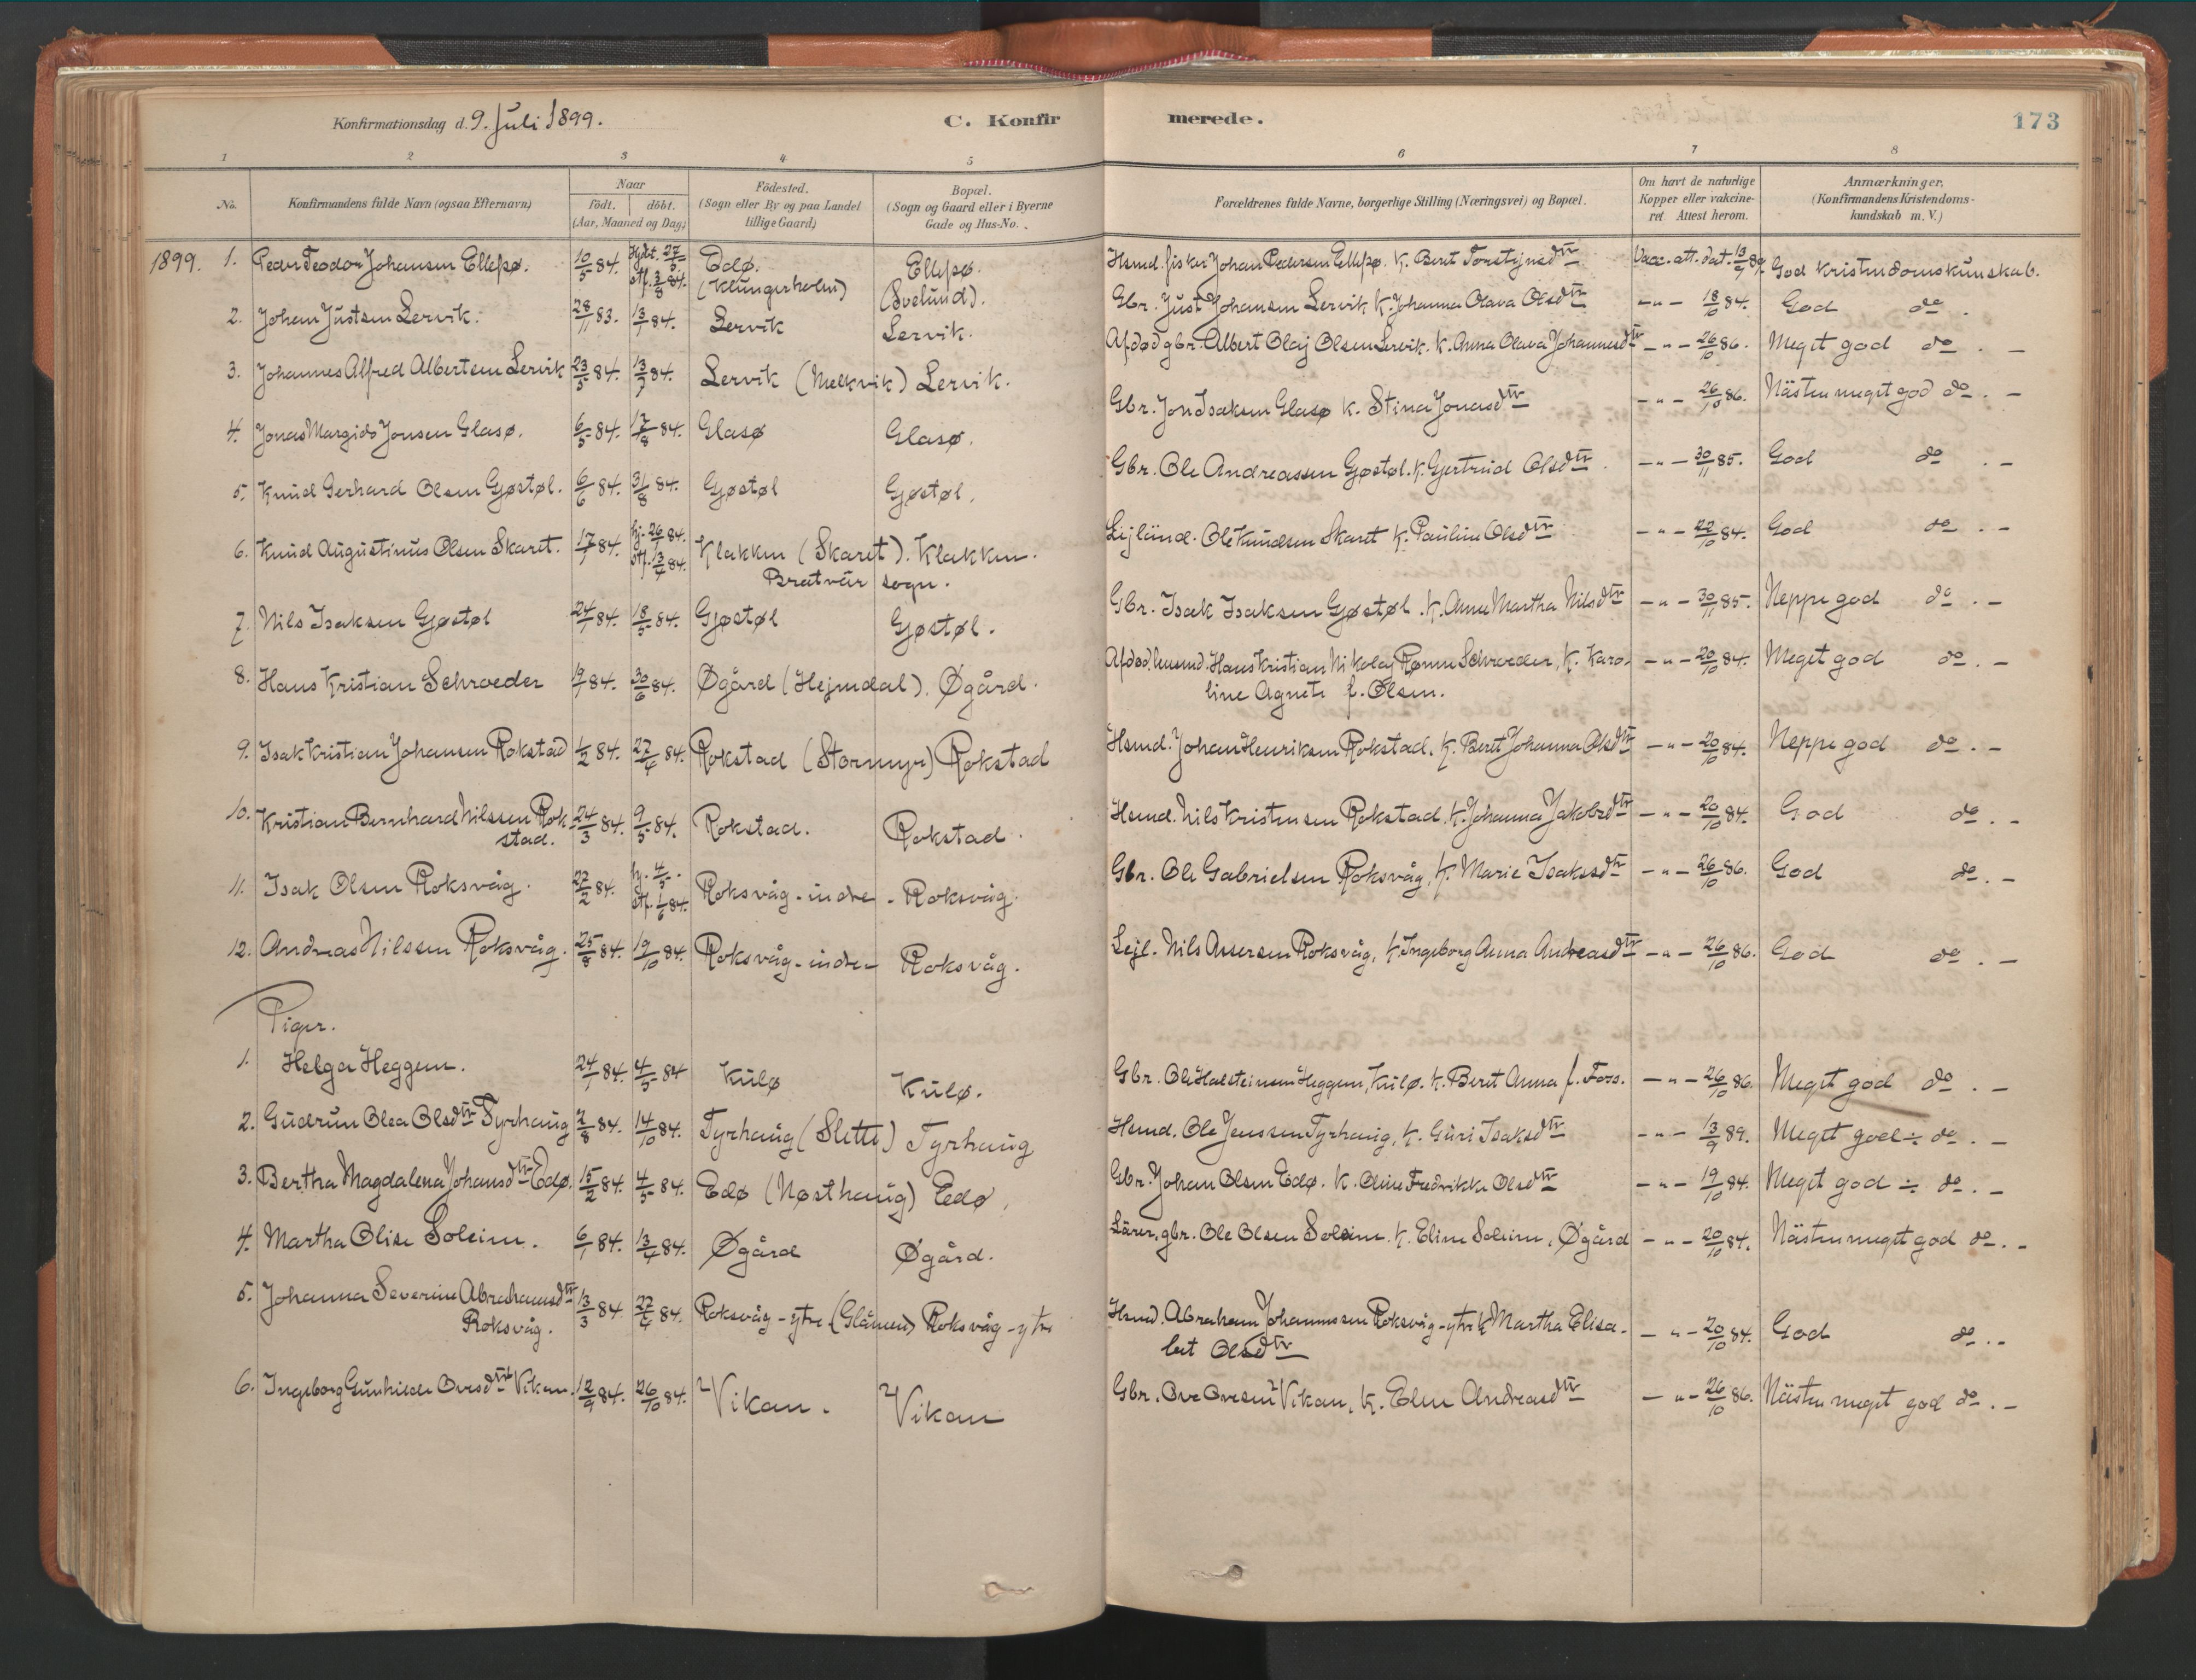 Konfirmationsdag d. 9. Juli 1899.
C. Konfirmerede.
173
1 2 3 4 5 6 7 8
No.
Konfirmandens fulde Navn (ogsaa Efternavn)
Naar
födt. döbt.
(Aar, Maaned og Dag)
Födested.
(Sogn eller By og paa Landet
tillige Gaard)
Bopæl.
(Sogn og Gaard eller i Byerne
Gade og Hus-No.
Forældrenes fulde Navne, borgerlige Stilling (Næringsvei) og Bopæl.
Om havt de naturlige
Kopper eller vakcine-
ret. Attest herom.
Anmærkninger,
(Konfirmandens Kristendoms-
kundskab m. V.)
1899. 1. Peder Teodor Johansen Ellepø. 10/5 84. Hjdt. 27/5 stf. 3/8 84. Edø. (Klungerholm) Ellepø. (Svelund). Hsmd. fisker Johan Pedersen Ellepø. K. Beret Torstensdtr Vacc. att. dat. 13/9 89. God kristendomskunskab.
2. Johan Justsen Lervik. 28/11 83. 13/1 84. Lervik Lervik. Gbr. Just Johansen Lervik K. Johanna Olava Olsdtr — " — 18/10 84. God do.
3. Johannes Alfred Albertsen Lervik 23/5 84. 13/7 84. Lervik (Melkvik) Lervik. Afdød gbr. Albert Olaj Olsen Lervik. K. Anna Olava Johannesdtr — " — 26/10 86. Meget god do. —
4. Jonas Margido Jonsen Glasø. 6/5 84. 17/8 84. Glasø Glasø. Gbr. Jon Isaksen Glasø K. Stina Jonasdtr — " — 26/10 86. Nästen meget god do. —
5. Knud Gerhard Olsen Gjøstøl. 6/6 84. 31/8 84. Gjøstøl Gjøstøl. Gbr. Ole Andreassen Gjøstøl. K. Gjertrud Olsdtr. — " — 30/11 85. God do. —
6. Knud Augustinus Olsen Skaret. 17/1 84. hj. 26/1 84. stf. 13/4 84. Klakken (Skaret). Klakken. Bratvär sogn. Lejlünd. Ole Knudsen Skaret K. Pauline Olsdtr — " — 22/10 84. God do. —
7. Nils Isaksen Gjøstøl 24/1 84. 18/5 84. Gjøstøl Gjøstøl. Gbr. Isak Isaksen Gjøstøl. K. Anne Martha Nilsdtr — " — 30/11 85. Neppe god do. —
8. Hans Kristian Schroeder 19/1 84. 30/6 84. Øgård (Hejmdal). Øgård. Afdød lensmd. Hans Kristian Nikolaj Rønne Schroeder, K. Karo-
line Agnete f. Olsen. — " — 20/10 84. Meget god do. —
9. Isak Kristian Johansen Rokstad 1/2 84. 27/4 84. Rokstad (Stormyr) Rokstad Hsmd. Johan Henriksen Rokstad, K. Beret Johanna Olsdtr — " — 20/10 84. Neppe god do. —
10. Kristian Bernhard Nilssen Rok-
stad. 24/3 84. 9/5 84. Rokstad. Rokstad. Hsmd. Nils Kristensen Rokstad. K. Johanna Jakobsdtr — " — 20/10 84. God do. —
11. Isak Olsen Roksvåg. 27/2 84. hj. 4/5. stf. 1/6 84. Roksvåg-indre - Roksvåg. Gbr. Ole Gabrielsen Roksvåg, K. Marie Isaksdtr — " — 26/10 86. God do. —
12. Andreas Nilssen Roksvåg. 25/8 84. 19/10 84. Roksvåg-indre Roksvåg. Lejl. Nils Assersen Roksvåg, K. Ingeborg Anna Andreasdtr — " — 26/10 86. God do. —
Piger.
1. Helga Heggem. 24/1 84. 4/5 84 Kulø Kulø. Gbr. Ole Halsteinsen Heggem, Kulø. K. Beret Anna f. Foss. — " — 26/10 86. Meget god do. —
2. Gudrun Olea Olsdtr Tyrhaug 2/8 84. 14/10 84. Tyrhaug (Slette) Tyrhaug Hsmd. Ole Jenssen Tyrhaug, K. Guri Isaksdtr — " — 13/9 89. Meget god ÷ do. —
3. Bertha Magdalena Johansdtr Edø. 15/2 84. 4/5 84. Edø (Nøsthaug) Edø. Gbr. Johan Olsen Edø. K. Oline Fredrikke Olsdtr — " — 19/10 84. Meget god ÷ do. —
4. Martha Olise Soleim. 6/1 84. 13/4 84. Øgård Øgård. Lärer, gbr. Ole Olsen Soleim. K. Eline Soleim, Øgård — " — 20/10 84. Nästen meget god do. —
5. Johanna Severine Abrahamsdtr
Roksvåg. 13/3 84. 27/4 84. Roksvåg-ytre (Glåmen) Roksvåg-ytre Hsmd. Abraham Johannessen Roksvåg-ytre K. Martha Elisa-
bet Olsdtr — " — 20/10 84. God do. —
6. Ingeborg Gunhilde Ovesdtr Vikan. 12/9 84. 26/10 84. Vikan. Vikan Gbr. Ove Ovesen Vikan, K. Elen Andreasdtr — " — 26/10 86. Nästen meget god do. —